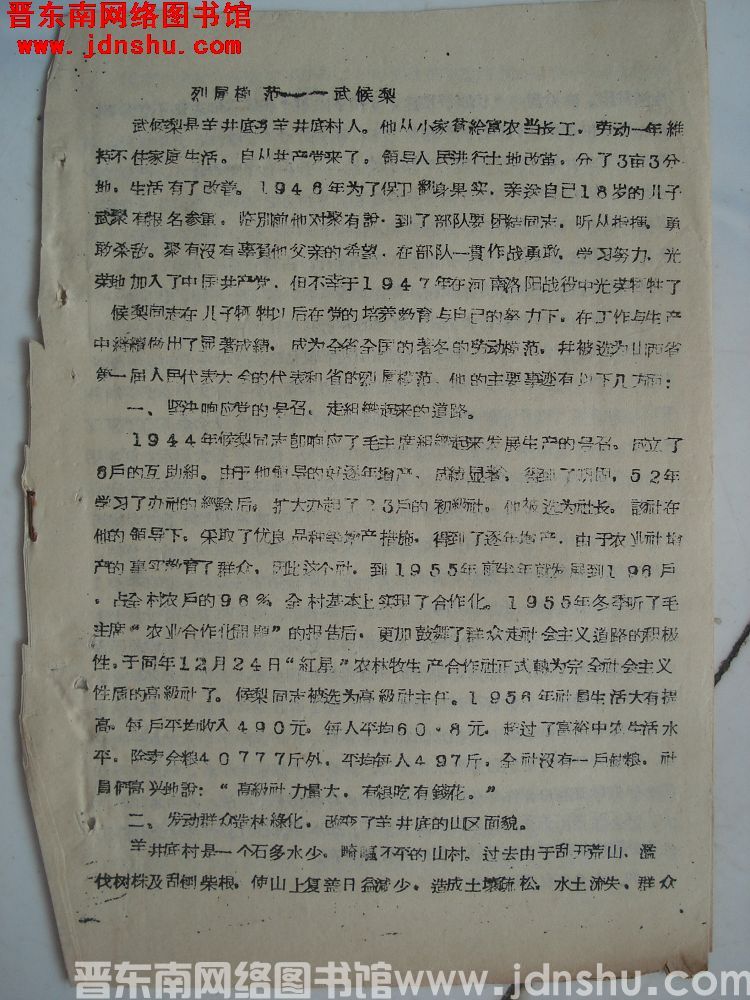 晋东南网络图书馆
www.jdnshu.com
烈属模范——武候梨
武候梨是羊井底乡羊井底村人。他从小家貧給富农当长工，劳动一年維
持不住家庭生活。自从共产党来了，領导人民进行土地改革，分了3亩3分
地，生活有了改善。1946年为了保卫翻身果实，亲送自己18岁的儿子
武聚有报名参軍。临别前他对聚有說，到了部队要团結同志，听从指揮，勇
敢杀敌。聚有沒有辜負他父亲的希望，在部队一貫作战勇敢，学习努力，光
荣地加入了中国共产党，但不幸于1947年在河南洛阳战役中光荣牺牲了
候梨同志在儿子牺牲以后在党的培养教育与自己的努力下，在工作与生产
中継續做出了显著成績，成为全省全国的著名的劳动模范，幷被选为山西省
第一届人民代表大会的代表和省的烈属模范，他的主要事迹有以下几方面：
一、坚决响应党的号召，走組織起来的道路。
1944年候梨同志即响应了毛主席組織起来发展生产的号召，成立了
6戶的互助組。由于他領导的好逐年增产，成績显著，得到了巩固，52年
学习了办社的經驗后，扩大办起了23戶的初級社。他被选为社长。該社在
他的領导下，采取了优良品种等增产措施，得到了逐年增产，由于农业社增
产的事实教育了群众，因此这个社，到1955年 发展到196戶
，占全村农戶的96%，全村基本上实現了合作化。1955年冬季听了毛
主席“农业合作化問題”的报告后，更加鼓舞了群众走社会主义道路的积极
性，于同年12月24日“紅星”农林牧生产合作社正式轉为完全社会主义
性质的高級社了。候梨同志被选为高級社主任。1956年社員生活大有提
高，每戶平均收入490元，每人平均60.8元，超过了富裕中农生活水
平，除卖余粮40777斤外，平均每人497斤，全社沒有一戶缺粮，社
員們高兴地說：“高級社力量大，有粮吃有錢花。”
二、发动群众造林綠化，改变了羊井底的山区面貌。
羊井底村是一个石多水少，崎嶇不平的山村。过去由于乱开荒山、濫
伐树株及刮刨柴根，使山上复盖日益减少，造成土壤疏松，水土流失，群众
晋东南网络图书馆www.jdnshu.com